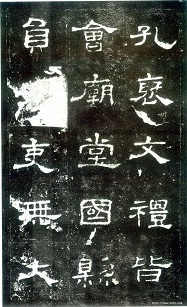 孔褒文禮皆
會廟堂國縣
員吏無大